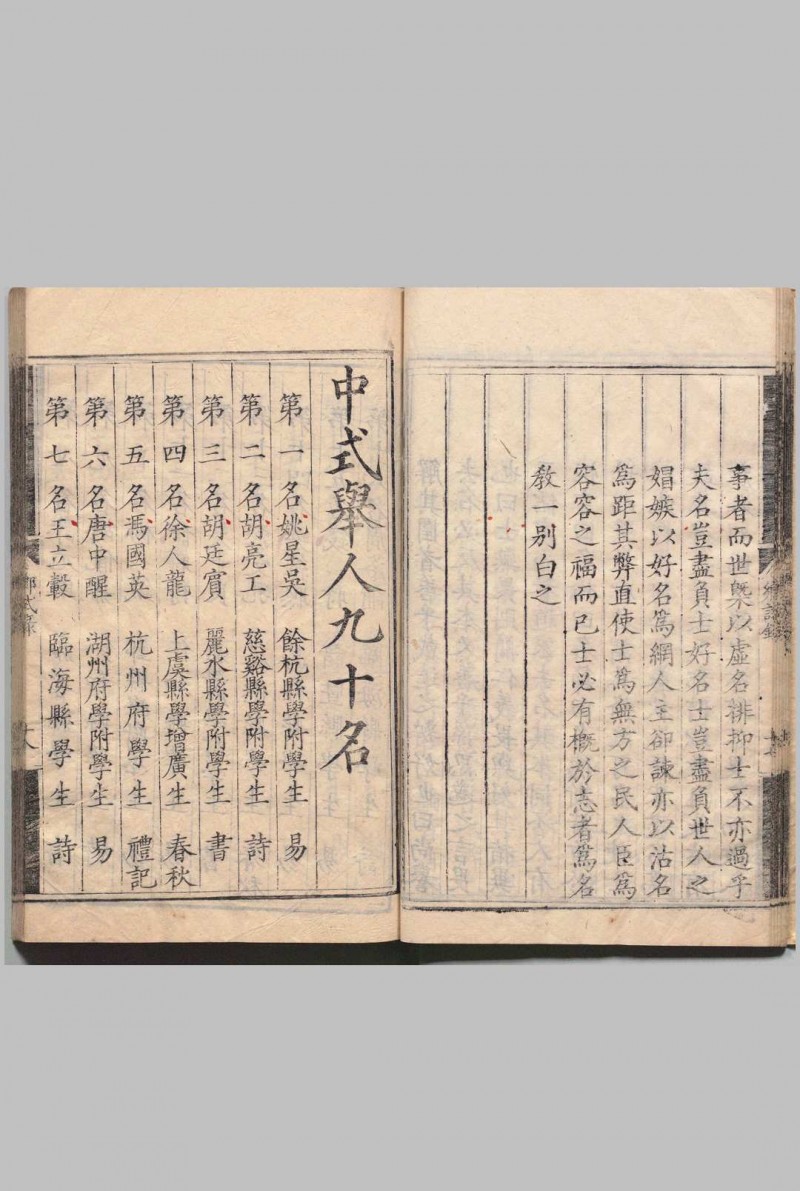 事者而世槩以虛名排抑士不亦過乎
夫名豈盡負士好名士豈盡負世人之
媢嫉以好名爲網人主卻諫亦以沽名
爲距其弊直使士爲無方之民人臣爲
容容之福而已士必有概於志者篤名
教一別白之
中式舉人九十名
第一名姚星吳 餘杭縣學附學生 易
第二名胡亮工 慈谿縣學附學生 詩
第三名胡廷賓 麗水縣學附學生 書
第四名徐人龍 上虞縣學增廣生 春秋
第五名馮國英 杭州府學生 禮記
第六名唐中醒 湖州府學附學生 易
第七名王立轂 臨海縣學生 詩